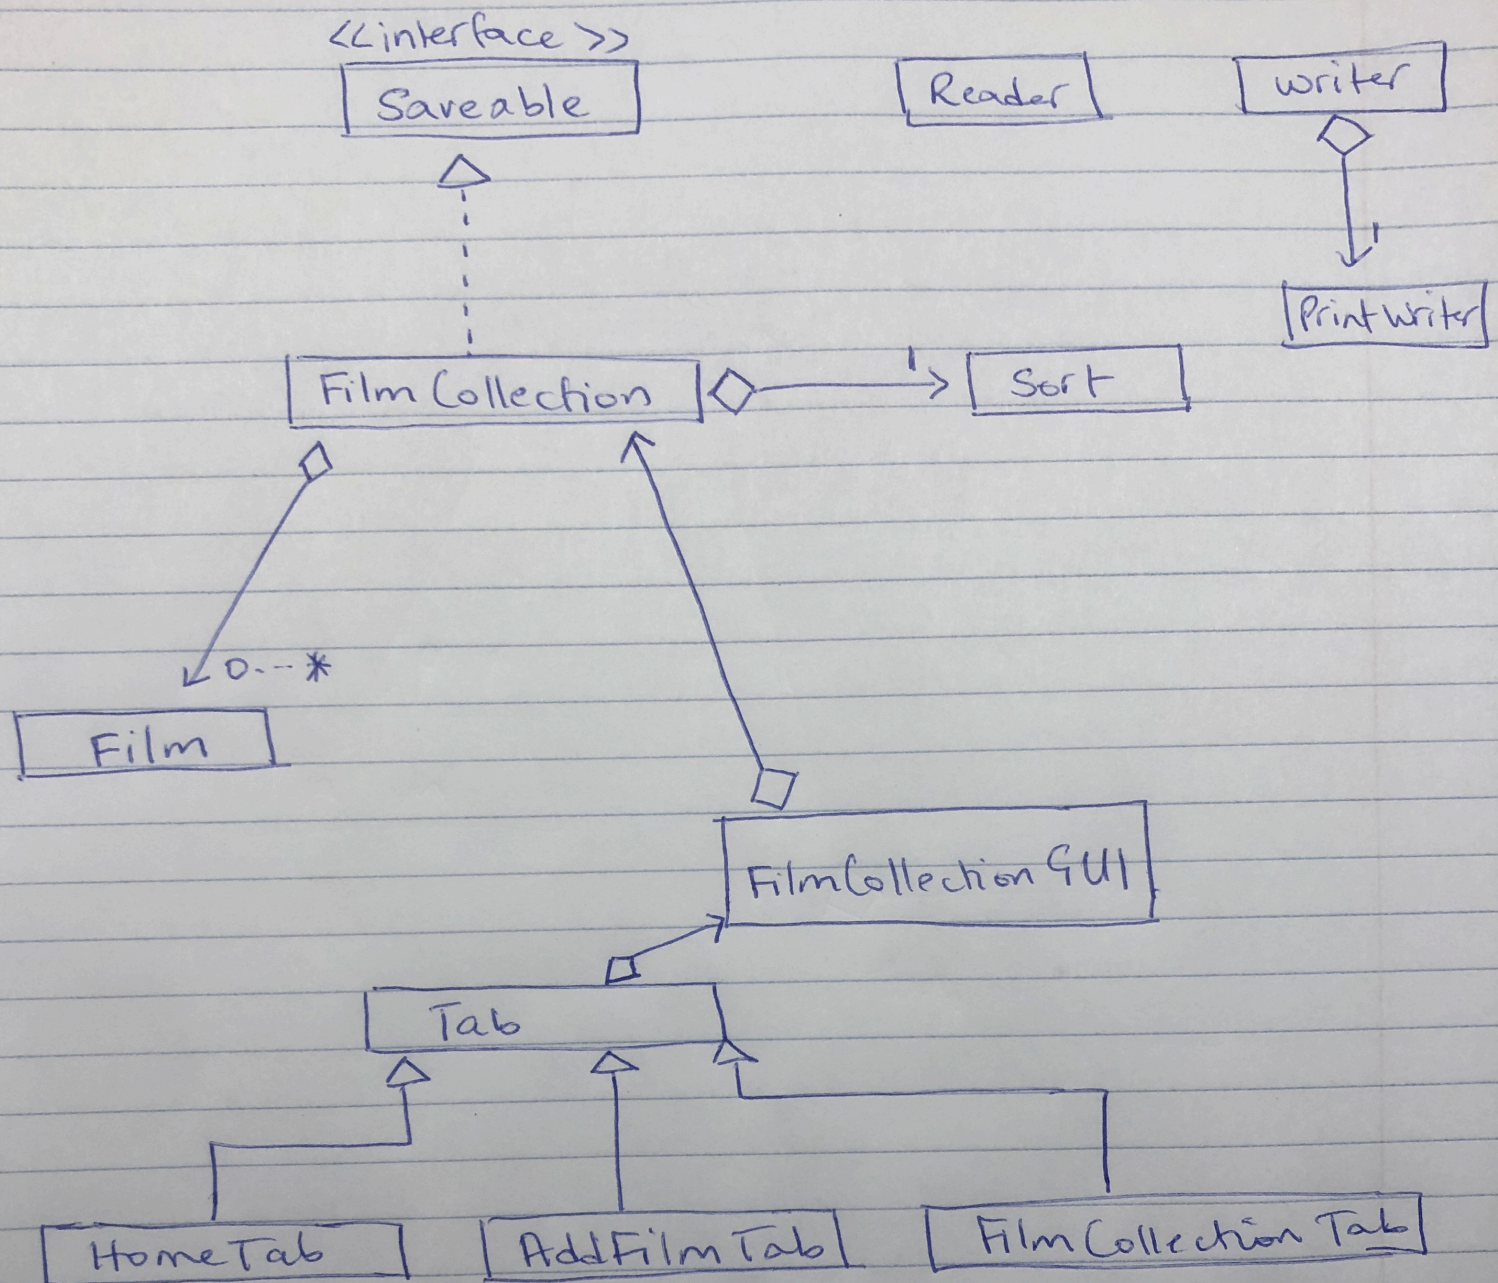 <<interface>>
Saveable
Reader
Writer
1
PrintWriter
FilmCollection
1
Sort
0...*
Film
FilmCollectionGUI
Tab
HomeTab
AddFilmTab
FilmCollectionTab